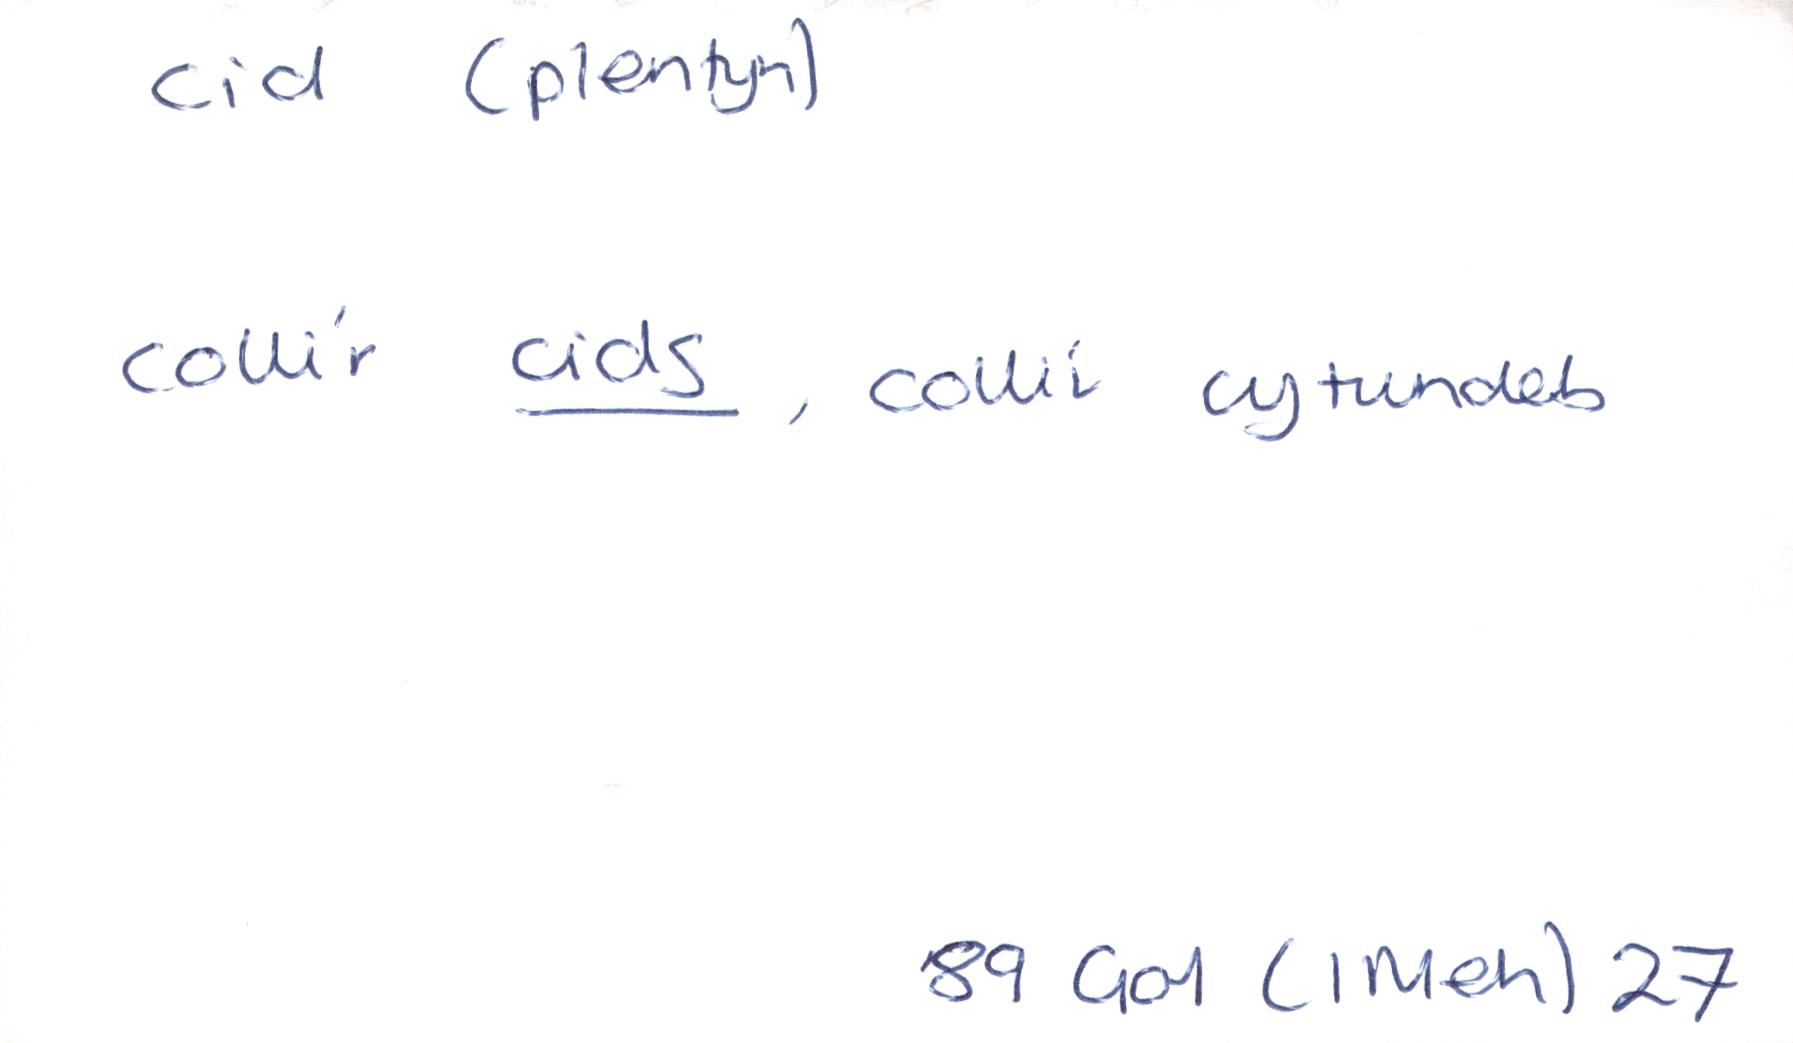 cid (plentyn)
colli'r cids, colli'i cytundeb
89 Gol (1 Meh) 27